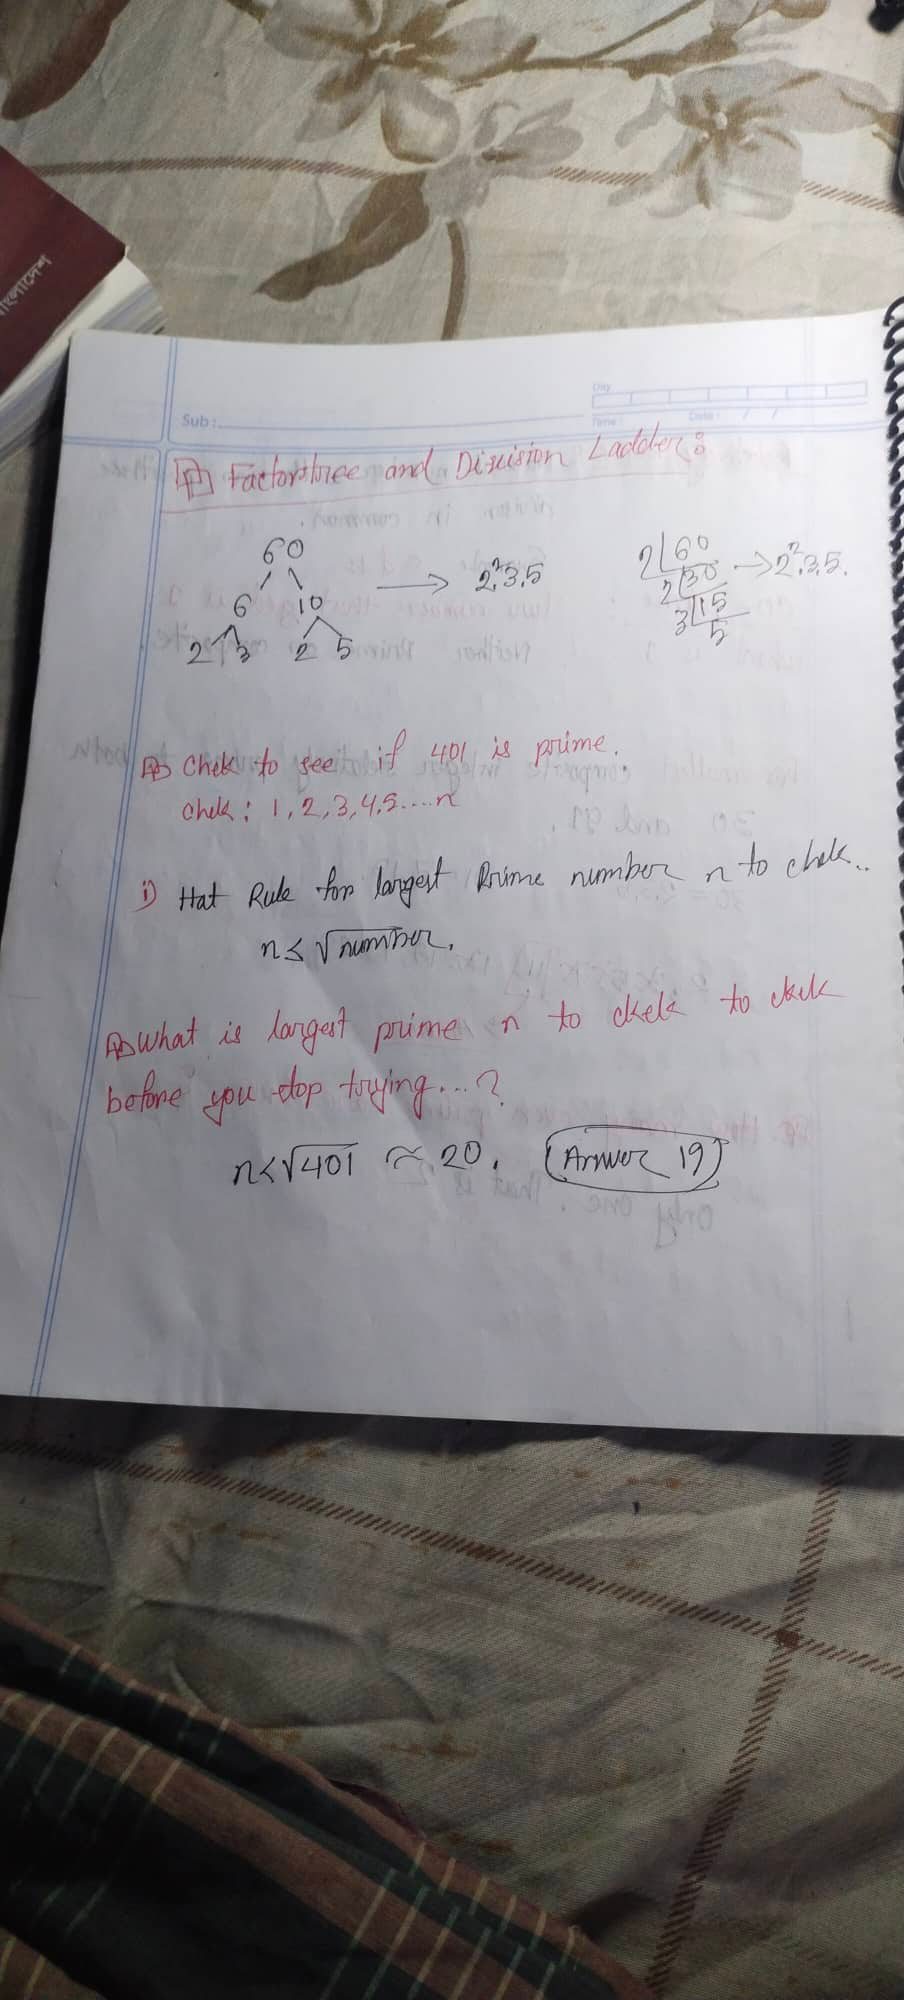 বাংলাদেশ
Sub:
Day
Time:
Date: / /
Factorstree and Division Ladder:
60
6 10
2 3 2 5
→ 2².3.5
2 60
2 30
3 15
5
→ 2².3.5.
Chek to see if 401 is prime.
Chek: 1,2,3,4,5....n
i) Hat Rule for largest Prime number n to chek..
n≤ √number.
What is largest prime n to chek to chek
before you stop trying...?
n<√401 ≈ 20. Answer 19